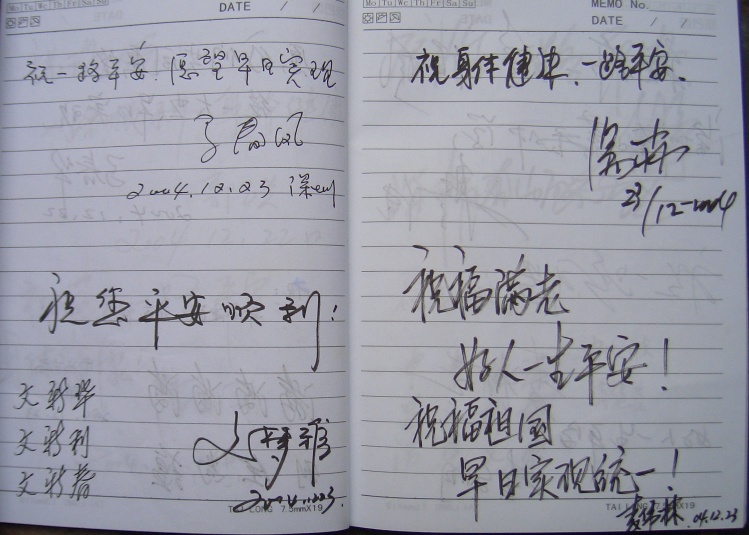 Mo Tu We Th Fr Sa Su
DATE / /
祝一路平安,愿望早日实现
2004.12.23 深圳
祝您平安顺利!
文新华
文新利
2004.12.23.
TAI LONG 7.5mmX19
Mo Tu We Th Fr Sa Su
MEMO No.
DATE / /
祝身体健康、一路平安、
23/12-2004
祝福满老
好人一生平安!
祝福祖国
早日实现统一!
04.12.23
TAI LONG 7.5mmX19